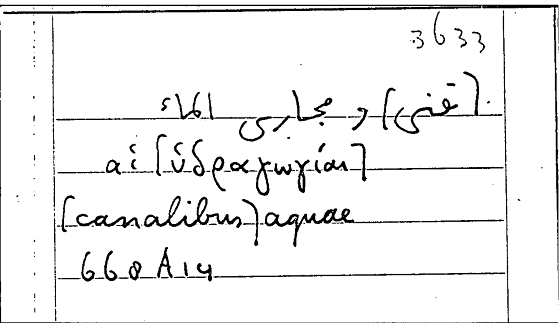 3633
[قنى] و مجارى الماء
αἱ [ὑδραγωγίαι]
[canalibus] aquae
668 A 14